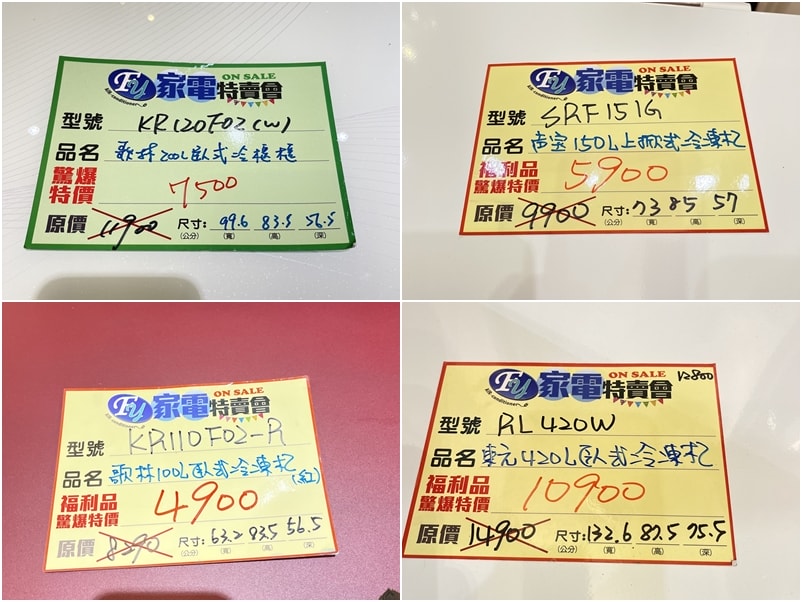 Fu 家電特賣會 ON SALE
air conditioner
型號 KR120F02(W)
品名 歌林200L臥式冷櫃
驚爆特價 7500
原價 11900 尺寸: 99.6 83.5 56.5
(公分) (寬) (高) (深)
Fu 家電特賣會 ON SALE
air conditioner
型號 SRF151G
品名 声宝150L上掀式冷凍柜
福利品
驚爆特價 5900
原價 9900 尺寸: 73 85 57
(公分) (寬) (高) (深)
Fu 家電特賣會 ON SALE
air conditioner
型號 KR110F02-R
品名 歌林100L臥式冷凍柜(紅)
福利品
驚爆特價 4900
原價 8290 尺寸: 63.2 83.5 56.5
(公分) (寬) (高) (深)
Fu 家電特賣會 ON SALE 12800
air conditioner
型號 RL420W
品名 東元420L臥式冷凍柜
福利品
驚爆特價 10900
原價 14900 尺寸: 132.6 87.5 75.5
(公分) (寬) (高) (深)